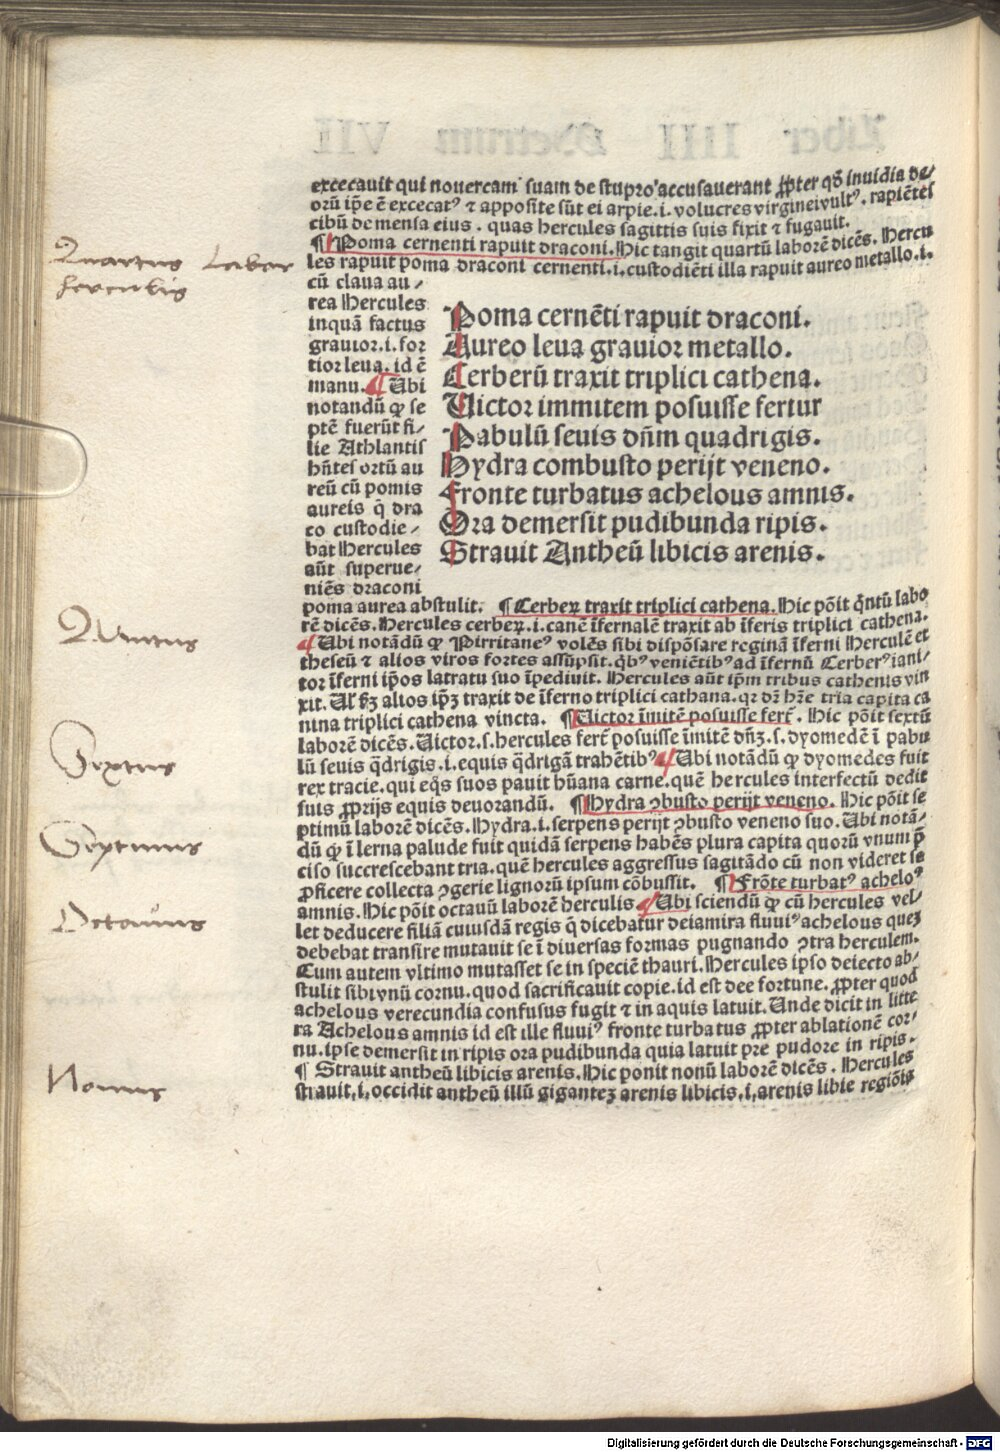 excecauit qui nouercam suam de stupro accusauerant ꝓpter qḋ inuidia de/
orū ip̄e ē excecatꝰ ⁊ apposite sūt ei arpie.i. volucres virgineivultꝰ. rapiētes
cibū de mensa eius. quas hercules sagittis suis fixit ⁊ fugauit.
¶ Poma cernenti rapuit draconi. Hic tangit quartū laborē dicēs. Hercu
les rapuit poma draconi cernenti.i.custodiēti illa rapuit aureo metallo.i.
Quartus Labor
herculis
cū claua au/
rea Hercules
inquā factus
grauior.i.for
tior leua. id ē
manu. ¶ Ubi
notandū ꝙ se
ptē fuerūt fi/
lie Athlantis
hn̄tes ortū au
reū cū pomis
aureis q̄ dra
co custodie/
bat Hercules
aūt superue/
niēs draconi
Poma cernēti rapuit draconi.
Aureo leua grauior metallo.
Cerberū traxit triplici cathena.
Uictor immitem posuisse fertur
Pabulū seuis dn̄m quadrigis.
Hydra combusto perijt veneno.
Fronte turbatus achelous amnis.
Ora demersit pudibunda ripis.
Strauit Antheū libicis arenis.
poma aurea abstulit. ¶ Cerbeꝝ traxit triplici cathena. Hic pōit q̄ntū labo
rē dicēs. Hercules cerbeꝝ.i.canē īfernalē traxit ab īferis triplici cathena.
Quintus
¶ Ubi notādū ꝙ Pirritaneꝰ volēs sibi dispōsare reginā īferni Herculē et
theseū ⁊ alios viros fortes assūpsit. qb̄ꝰ veniētibꝰ ad īfernū Cerberꝰ iani/
tor īferni ip̄os latratu suo īpediuit. Hercules aūt ip̄m tribus cathenis vin
xit. Ul' ẜꝫ alios ip̄ꝫ traxit de īferno triplici cathana. qꝛ dꝛ hr̄e tria capita ca
nina triplici cathena vincta. ¶ Uictor īmitē posuisse fert̄. Hic pōit sextū
Sextus
laborē dicēs. Uictor.s.hercules fert̄ posuisse īmitē dn̄ꝫ.s.dyomedē ī pabu
lū seuis q̄drigis.i.equis q̄drigā trahētibꝰ ¶ Ubi notādū ꝙ dyomedes fuit
rex tracie. qui eq̄s suos pauit hūana carne. quē hercules interfectū dedit
suis ꝓprijs equis deuorandū. ¶ Hydra ↄbusto perijt veneno. Hic pōit se
Septimus
ptimū laborē dicēs. Hydra.i.serpens perijt ↄbusto veneno suo. Ubi notā/
dū ꝙ ī lerna palude fuit quidā serpens habēs plura capita quorū vnum p̄
ciso succrescebant tria. quē hercules aggressus sagitādo cū non videret se
ꝓficere collecta ↄgerie lignorū ipsum cōbussit. ¶ Frōte turbatꝰ acheloꝰ
amnis. Hic pōit octauū laborē herculis ¶ Ubi sciendū ꝙ cū hercules vel/
Octauus
let deducere filiā cuiusdā regis q̄ dicebatur deiamira fluuiꝰ achelous queꝫ
debebat transire mutauit se ī diuersas formas pugnando ↄtra herculem.
Cum autem vltimo mutasset se in speciē thauri. Hercules ipso deiecto ab/
stulit sibi vnū cornu. quod sacrificauit copie. id est dee fortune. ꝓpter quod
achelous verecundia confusus fugit ⁊ in aquis latuit. Unde dicit in litte
ra Achelous amnis id est ille fluuiꝰ fronte turbatus ꝓpter ablationē cor/
nu. ipse demersit in ripis ora pudibunda quia latuit pre pudore in ripis.
¶ Strauit antheū libicis arenis. Hic ponit nonū laborē dicēs. Hercules
Nonus
strauit.i.occidit antheū illū giganteꝫ arenis libicis.i.arenis libie regiōis
Digitalisierung gefördert durch die Deutsche Forschungsgemeinschaft - DFG